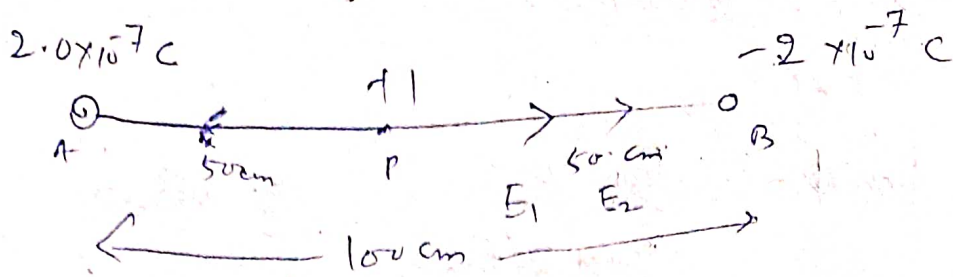 2.0×10⁻⁷ C
-2 ×10⁻⁷ C
+1
A
50cm
P
50 cm
B
E₁ E₂
100 cm